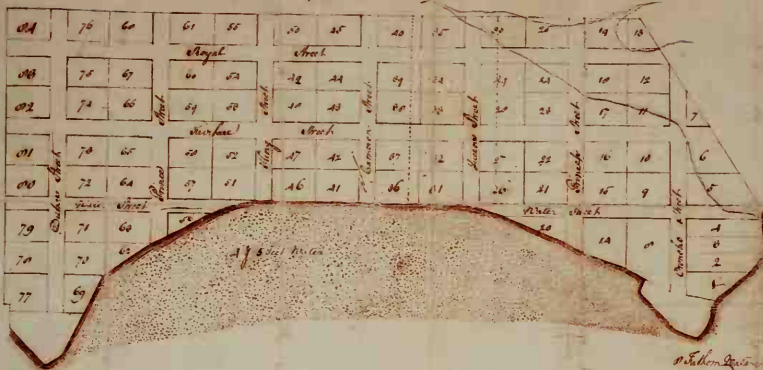 84 76 68 61 55 50 45 40 35 30 25 19 13
Royal Street
83 75 67 60 54 49 44 39 34 29 24 18 12
82 74 66 59 53 48 43 38 33 28 23 17 11 7
Fairfax Street
81 73 65 58 52 47 42 37 32 27 22 16 10 6
80 72 64 57 51 46 41 36 31 26 21 15 9 5
Water Street
Water Street
79 71 63 56 20 14 8 4
3
78 70 62 2
77 69 1
Dukes Street
Princes Street
Kings Street
Cameron Street
Queens Street
Princess Street
Oronoko Street
4 or 5 feet Water
8 Fathom Water